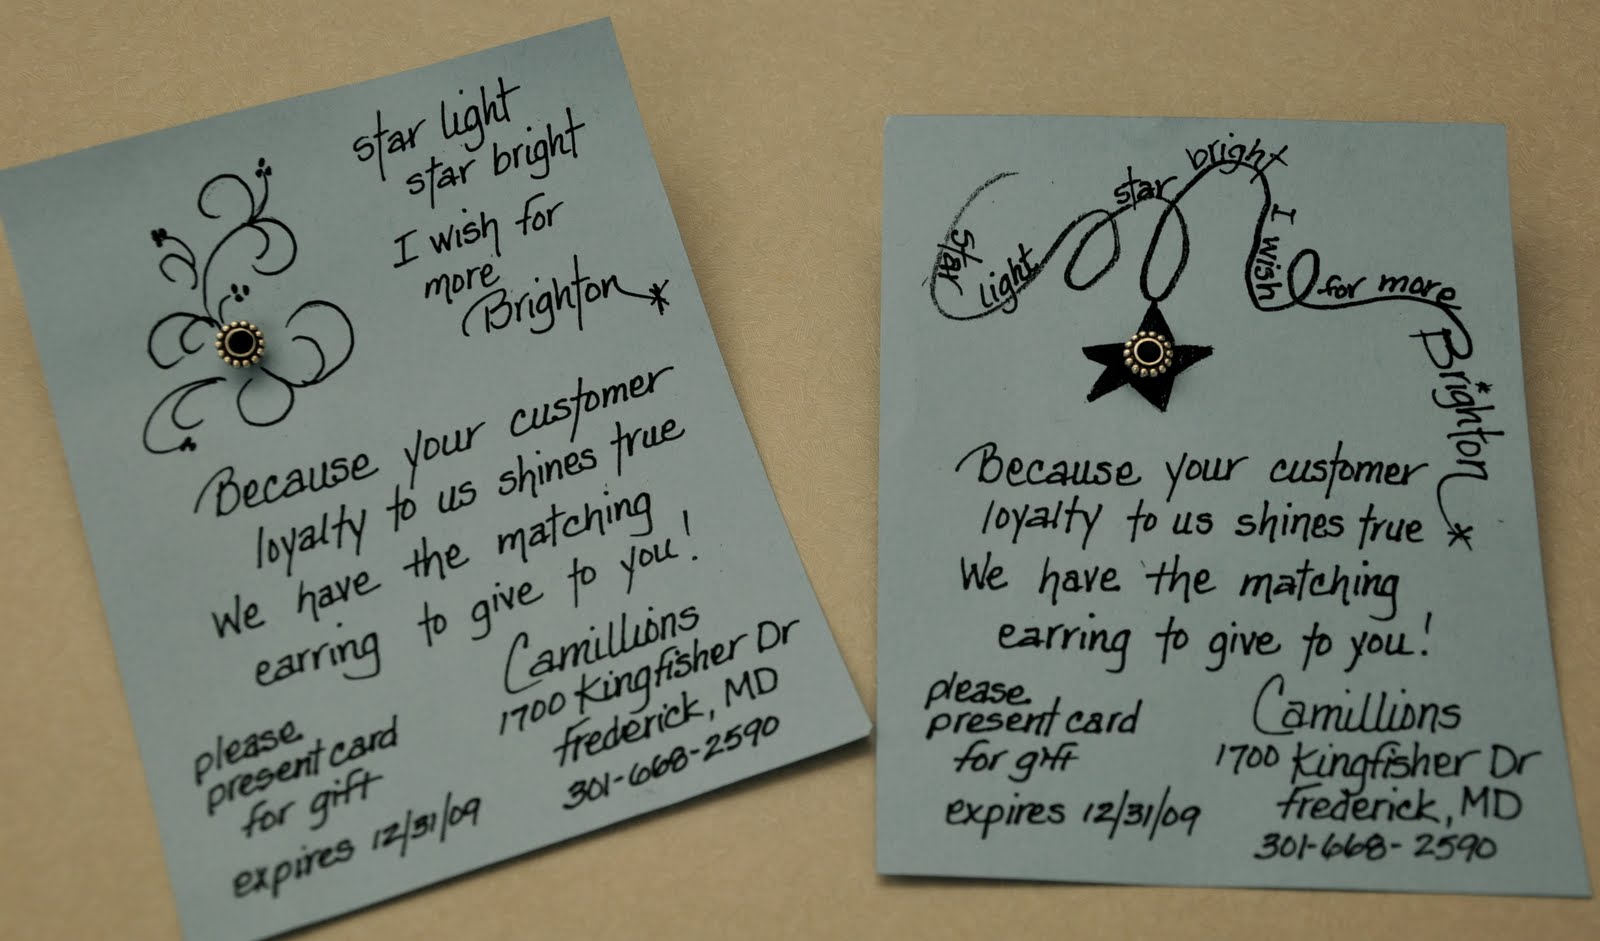 star light
star bright
I wish for
more
Brighton
Because your customer
loyalty to us shines true
We have the matching
earring to give to you!
please
present card
for gift
expires 12/31/09
Camillions
1700 Kingfisher Dr
Frederick, MD
301-668-2590
star light star bright I wish for more Brighton
Because your customer
loyalty to us shines true
We have the matching
earring to give to you!
please
present card
for gift
expires 12/31/09
Camillions
1700 Kingfisher Dr
Frederick, MD
301-668-2590